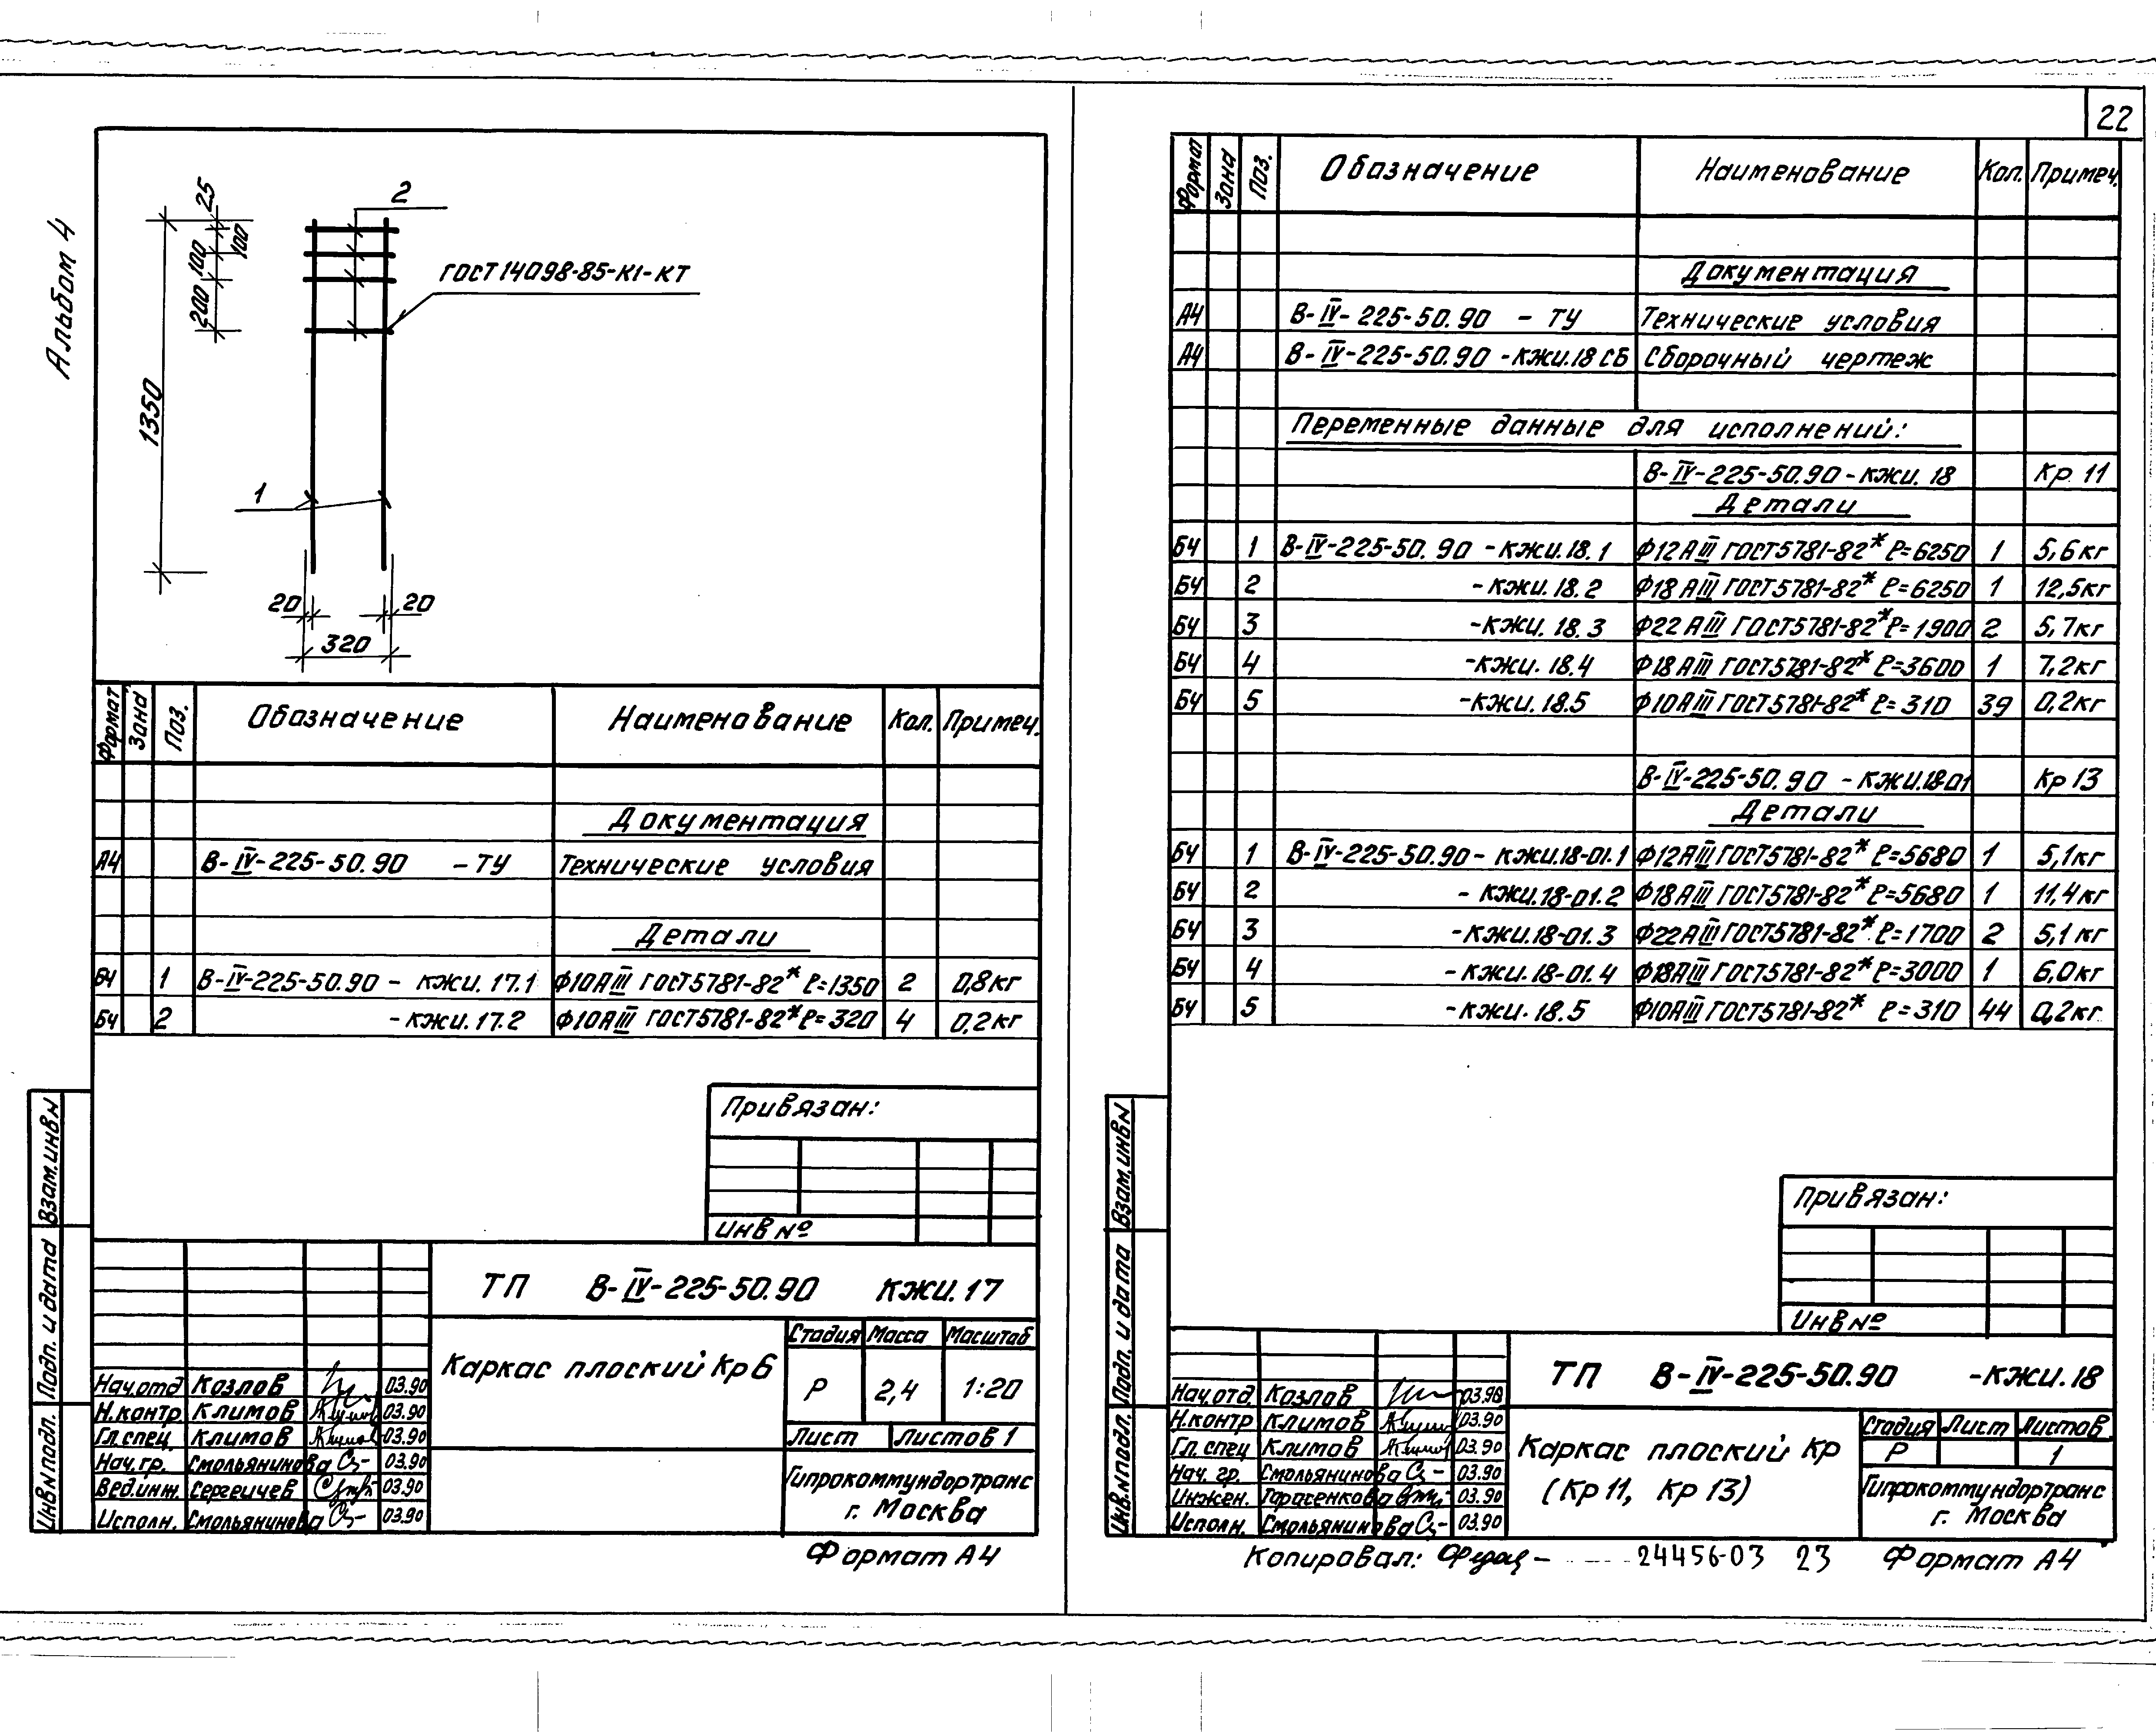 Альбом 4
25
100
100
200
1350
2
ГОСТ 14098-85-К1-КТ
1
20
20
320
Формат Зона Поз. Обозначение Наименование Кол. Примеч.
Документация
А4 В-IV-225-50.90 -ТУ Технические условия
Детали
БЧ 1 В-IV-225-50.90 - КЖИ.17.1 Ф10АIII ГОСТ5781-82* ℓ=1350 2 0,8кг
БЧ 2 -КЖИ.17.2 Ф10АIII ГОСТ5781-82* ℓ=320 4 0,2кг
Привязан:
Инв №
ТП В-IV-225-50.90 КЖИ.17
Каркас плоский Кр6
Стадия Масса Масштаб
Р 2,4 1:20
Лист Листов 1
Гипрокоммундортранс
г. Москва
Нач.отд Козлов 03.90
Н.контр Климов 03.90
Гл.спец. Климов 03.90
Нач.гр. Смольянинова 03.90
Вед.инж. Сергеичев 03.90
Исполн. Смольянинова 03.90
Взам.инв№
Подп. и дата
Инв№подл.
Формат А4
22
Формат Зона Поз. Обозначение Наименование Кол. Примеч.
Документация
А4 В-IV-225-50.90 -ТУ Технические условия
А4 В-IV-225-50.90 -КЖИ.18 СБ Сборочный чертеж
Переменные данные для исполнений:
В-IV-225-50.90-КЖИ.18 Кр 11
Детали
БЧ 1 В-IV-225-50.90 -КЖИ.18.1 Ф12АIII ГОСТ5781-82* ℓ=6250 1 5,6кг
БЧ 2 -КЖИ.18.2 Ф18АIII ГОСТ5781-82* ℓ=6250 1 12,5кг
БЧ 3 -КЖИ.18.3 Ф22АIII ГОСТ5781-82* ℓ=1900 2 5,7кг
БЧ 4 -КЖИ.18.4 Ф18АIII ГОСТ5781-82* ℓ=3600 1 7,2кг
БЧ 5 -КЖИ.18.5 Ф10АIII ГОСТ5781-82* ℓ=310 39 0,2кг
В-IV-225-50.90 -КЖИ.18-01 Кр 13
Детали
БЧ 1 В-IV-225-50.90- КЖИ.18-01.1 Ф12АIII ГОСТ5781-82* ℓ=5680 1 5,1кг
БЧ 2 - КЖИ.18-01.2 Ф18АIII ГОСТ5781-82* ℓ=5680 1 11,4кг
БЧ 3 -КЖИ.18-01.3 Ф22АIII ГОСТ5781-82* ℓ=1700 2 5,1кг
БЧ 4 -КЖИ.18-01.4 Ф18АIII ГОСТ5781-82* ℓ=3000 1 6,0кг
БЧ 5 -КЖИ.18.5 Ф10АIII ГОСТ5781-82* ℓ=310 44 0,2кг
Привязан:
Инв №
ТП В-IV-225-50.90 -КЖИ.18
Каркас плоский Кр
(Кр 11, Кр 13)
Стадия Лист Листов
Р 1
Гипрокоммундортранс
г. Москва
Нач.отд. Козлов 03.90
Н.контр Климов 03.90
Гл.спец Климов 03.90
Нач. гр. Смольянинова 03.90
Инжен. Тарасенкова 03.90
Исполн. Смольянинова 03.90
Взам.инв№
Подп. и дата
Инв.№подл.
Копировал: 24456-03 23 Формат А4